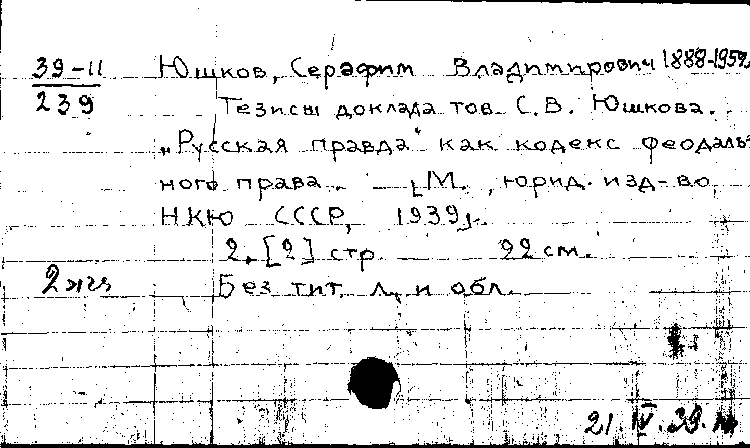 39-11
239
Юшков, Серафим Владимирович 1888-1952
Тезисы доклада тов. С.В. Юшкова.
„Русская правда" как кодекс феодаль-
ного права. — [М., юрид. изд-во
НКЮ СССР, 1939].
2, [2] стр. 22 см.
2 экз
Без тит. л. и обл.
21.IV.39.